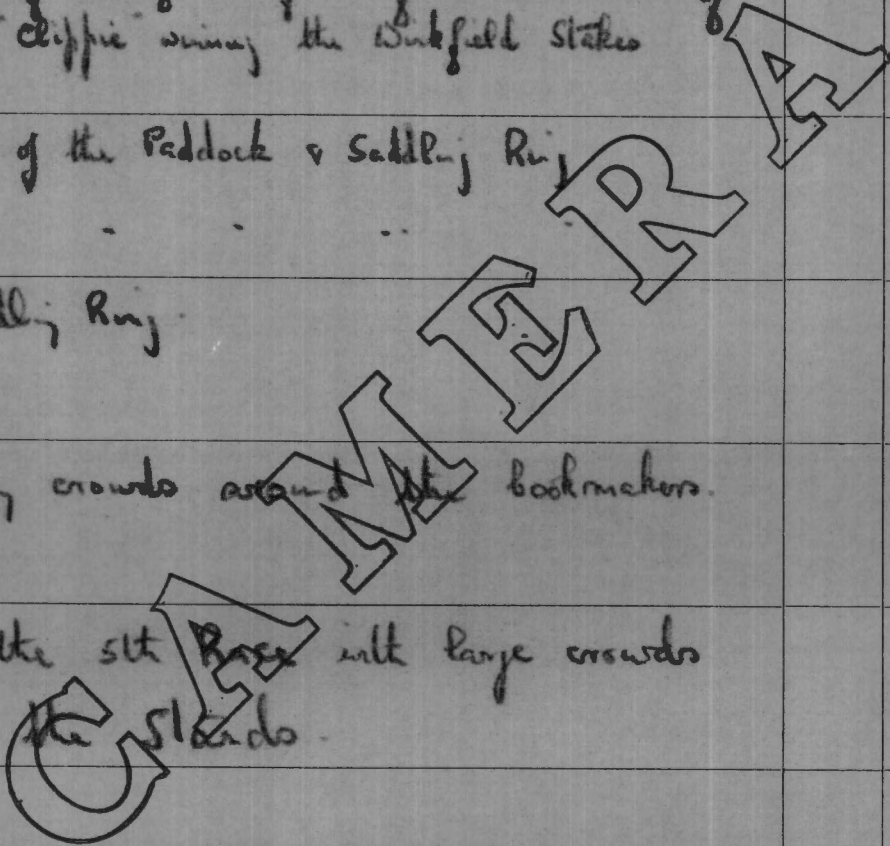 Clippie winning the Winkfield Stakes
of the Paddock & Saddling Ring
Ring.
crowds around the bookmakers.
the 5th Race with large crowds
the Stands.
CAMERA